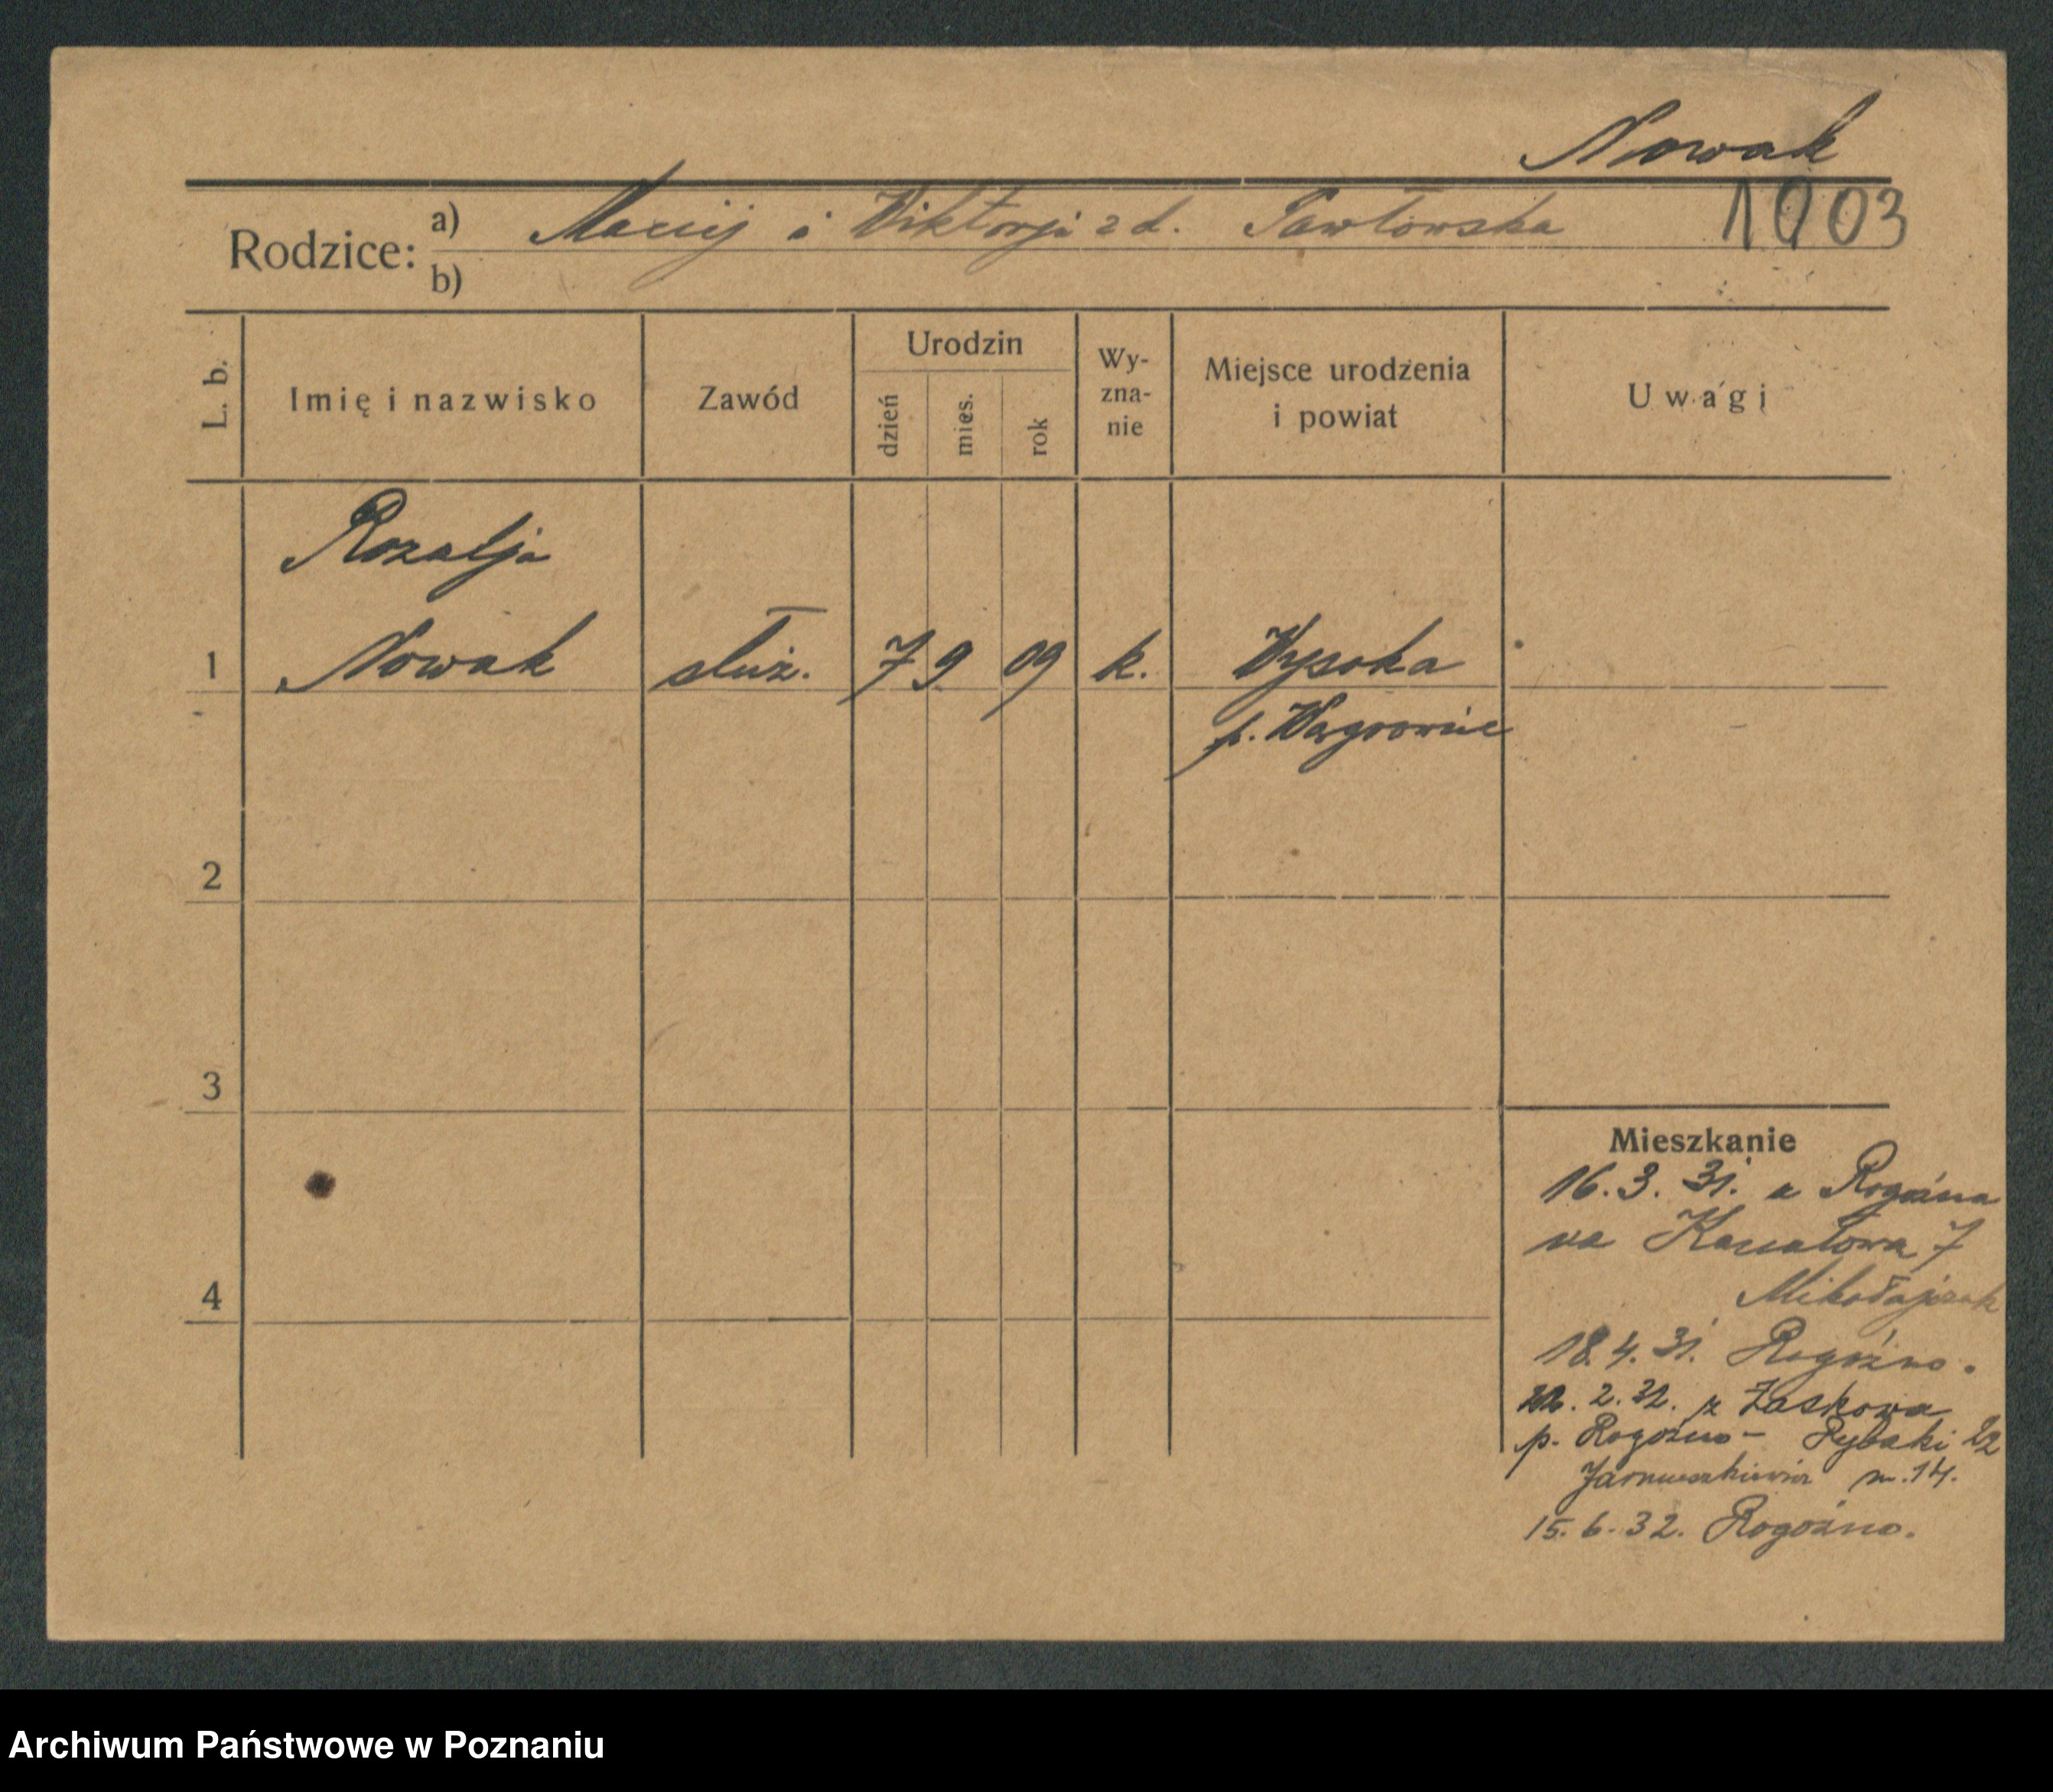 Nowak
1003
Rodzice: a) Maciej i Wiktorja zd. Pawłowska
b)
L. b.
Imię i nazwisko
Zawód
Urodzin
dzień
mies.
rok
Wy-
zna-
nie
Miejsce urodzenia
i powiat
Uwagi
Rozalja
1 Nowak służ. 7 9 09 k. Wysoka
p. Wągrowiec
2
3
4
Mieszkanie
16.3.31. z Rogoźna
na Kanałowa 7
Mikołajczak
18.4.31. Rogoźno.
2.32. z Laskowa
p. Rogoźno - Rybaki 22
m. 14.
15.6.32. Rogoźno.
Archiwum Państwowe w Poznaniu